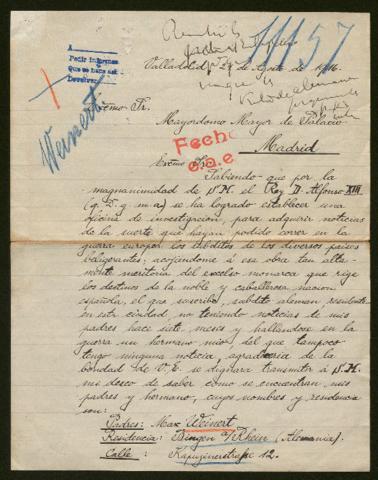 A
Pedir informes
Que se haga
Devolver
11157
Weinert
Valladolid, 29 de Agosto de 1916.
Excmo Sr.
Mayordomo Mayor de Palacio
Madrid
Fecho
Excmo Sr:
Sabiendo que por la
magnanimidad de S.M. el Rey D. Alfonso XIII
(q. D. g. m. a) se ha logrado establecer una
oficina de investigación, para adquirir noticias
de la suerte que hayan podido correr en la
guerra europea los súbditos de los diversos países
beligerantes; acojiéndome á esa obra tan alta-
mente meritoria del excelso monarca que rige
los destinos de la noble y caballerosa nación
española, el que suscribe, súbdito alemán residente
en esta ciudad, no teniendo noticias de mis
padres hace siete meses y hallándose en la
guerra un hermano mío, del que tampoco
tengo ninguna noticia, agradecería de la
bondad de V.E. se dignara transmitir á S.M.
mi deseo de saber como se encuentran mis
padres y hermano, cuyos nombres y residencia
son:
Padres: Max Weinert
Residencia: Bingen a/Rhein (Alemania).
Calle: Kapuzinerstraße 12.